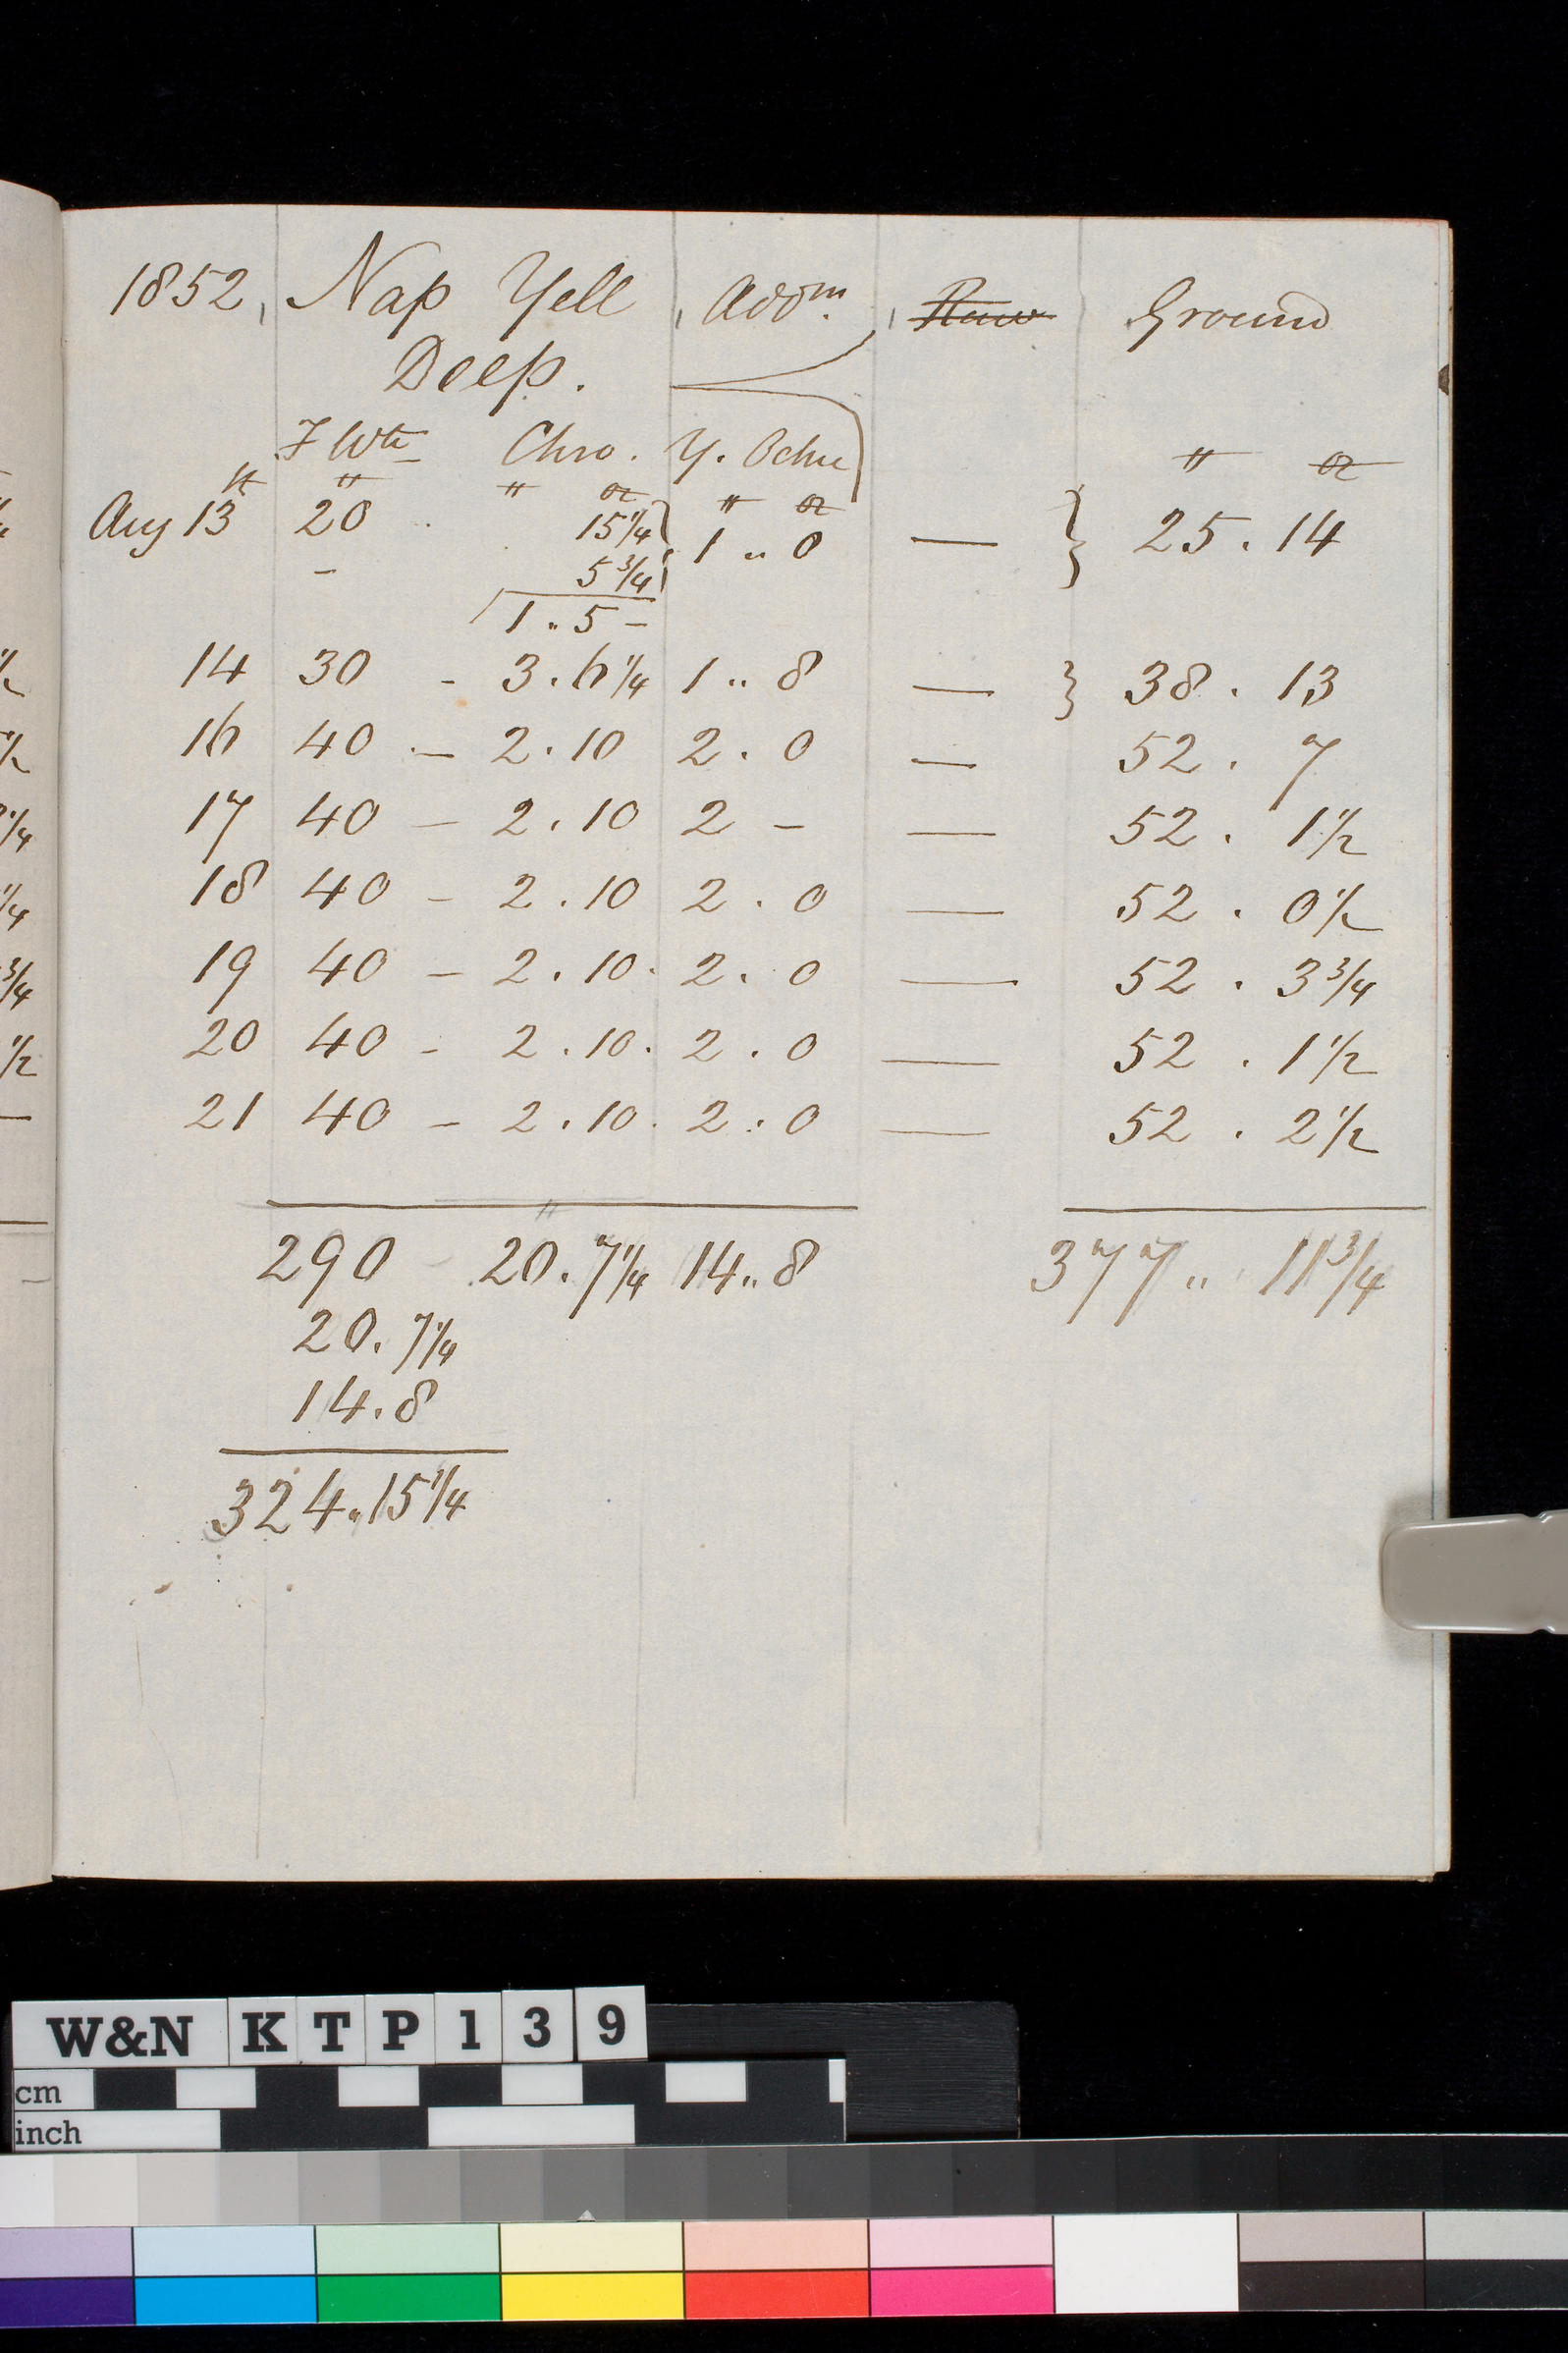 1852, Nap Yell Addn. ~~Raw~~ Ground
Deep.
F Wte Chro. Y. Ochre
lb lb oz lb oz lb oz
Aug 13 20 15 1/4 } 1 .. 0 — } 25 . 14
- 5 3/4
1 .. 5 -
14 30 - 3 . 6 1/4 1 .. 8 — } 38 . 13
16 40 - 2 . 10 2 . 0 — 52 . 7
17 40 - 2 . 10 2 - — 52 . 1 1/2
18 40 - 2 . 10 2 . 0 — 52 . 0 1/2
19 40 - 2 . 10 . 2 . 0 — 52 . 3 3/4
20 40 - 2 . 10 . 2 . 0 — 52 . 1 1/2
21 40 - 2 . 10 . 2 . 0 — 52 . 2 1/2
290 20 . 7 1/4 14 .. 8 377 .. 11 3/4
20 . 7 1/4
14 . 8
324 . 15 1/4
W&N KTP139
cm
inch